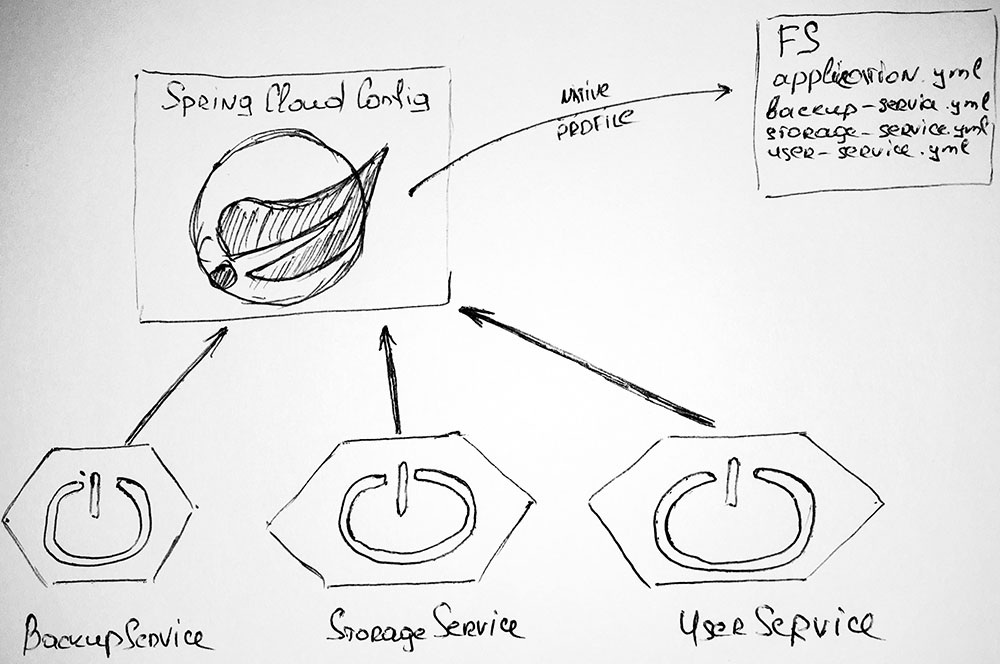 Spring Cloud Config
NATIVE
PROFILE
FS
application.yml
backup-servia.yml
storage-service.yml
user-service.yml
BackupService
StorageService
UserService